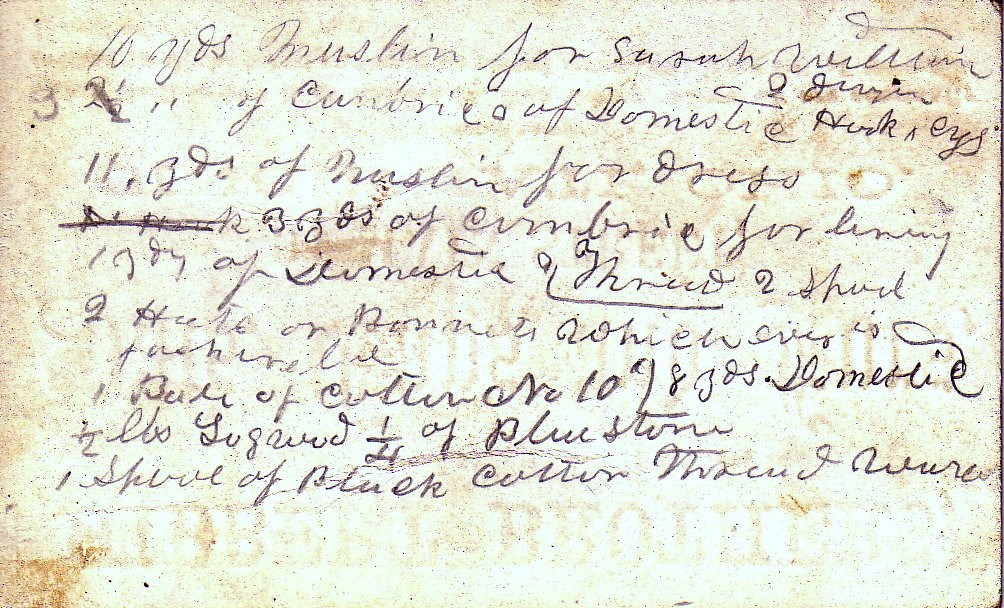 10 yds Muslin for Sarah William
3 " of Cambric & of Domestic 2 dozen Hook & eys
11, yds of Muslin for dress
3 yds of Cambric for lining
1 yds of Domestic of Thread 2 Spool
2 Hats or Bonnets Which ever is
fashinable
1 Bale of Cotton No 10 8 yds. Domestic
½ lbs Logwood ¼ of Blue stone
1 Spool of Black Cotton Thread